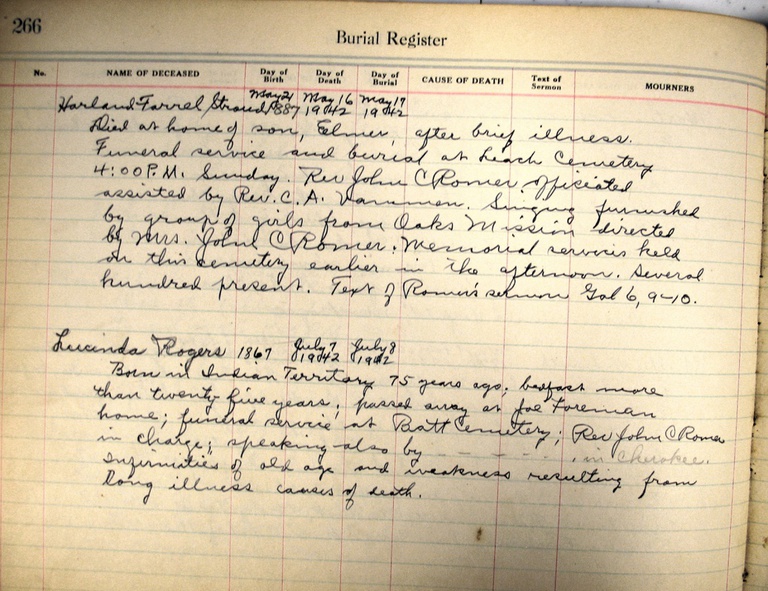 266
Burial Register
No. NAME OF DECEASED Day of Birth Day of Death Day of Burial CAUSE OF DEATH Text of Sermon MOURNERS
Harland Farrel Stroud May 21 1887 May 16 1942 May 17 1942
Died at home of son, Elmer, after brief illness.
Funeral service and burial at Leach Cemetery
4:00 P.M. Sunday. Rev John C Romer officiated
assisted by Rev. C. A. Vammen. Singing furnished
by group of girls from Oaks Mission directed
by Mrs. John C Romer. Memorial services held
on this cemetery earlier in the afternoon. Several
hundred present. Text of Romer's sermon Gal 6, 9-10.
Lucinda Rogers 1867 July 7 1942 July 8 1942
Born in Indian Territory 75 years ago; bedfast more
than twenty-five years; passed away at Joe Foreman
home; funeral service at Batt Cemetery; Rev John C Romer
in charge; speaking also by - - - - - - . in Cherokee.
Infirmities of old age and weakness resulting from
long illness causes of death.